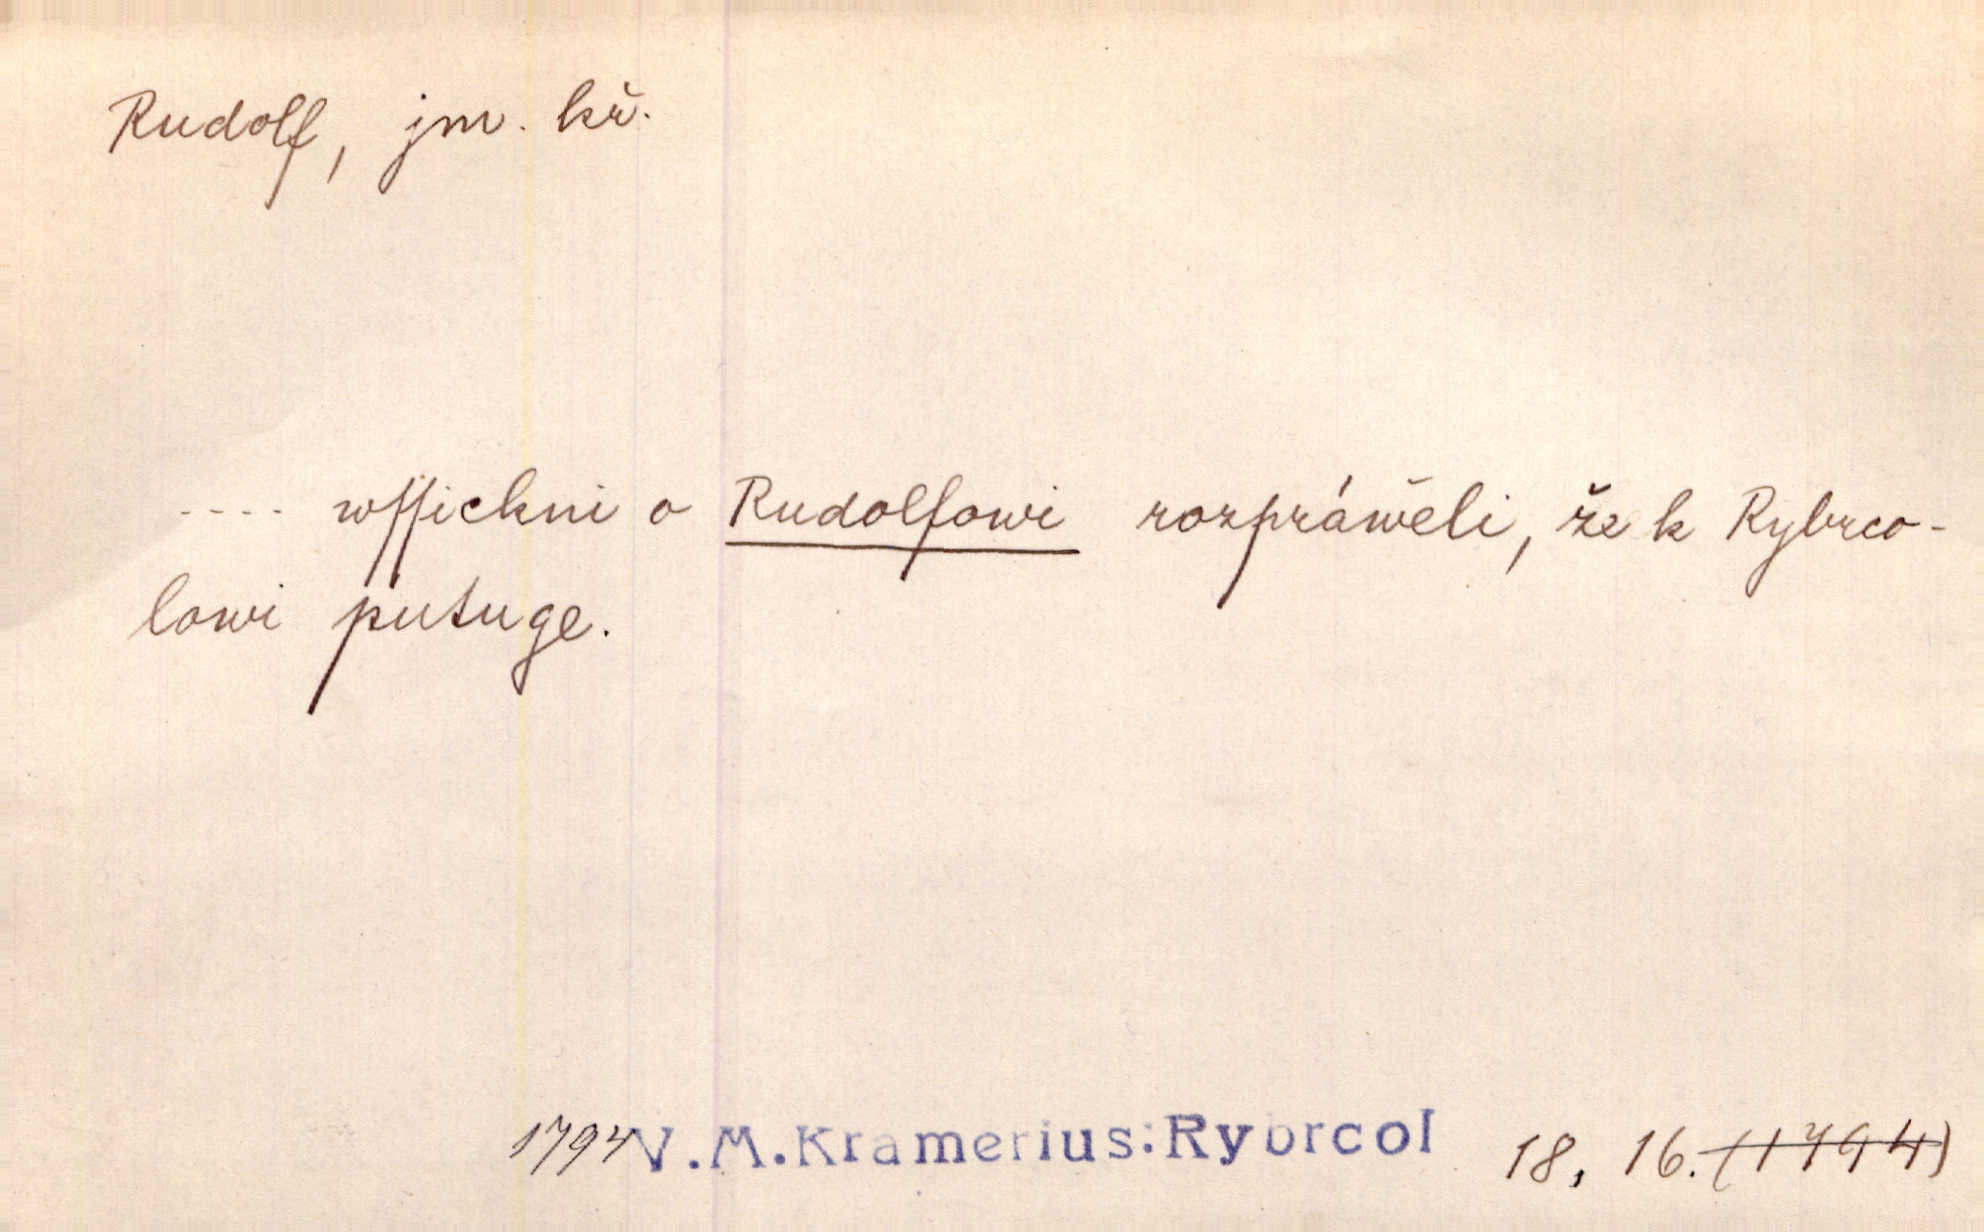 Rudolf, jm. kř.
---- wſſickni o Rudolfowi rozpráwěli, že k Rybrco-
lowi putuge.
1794 V.M.Kramerius:Rybrcol 18, 16. (1794)